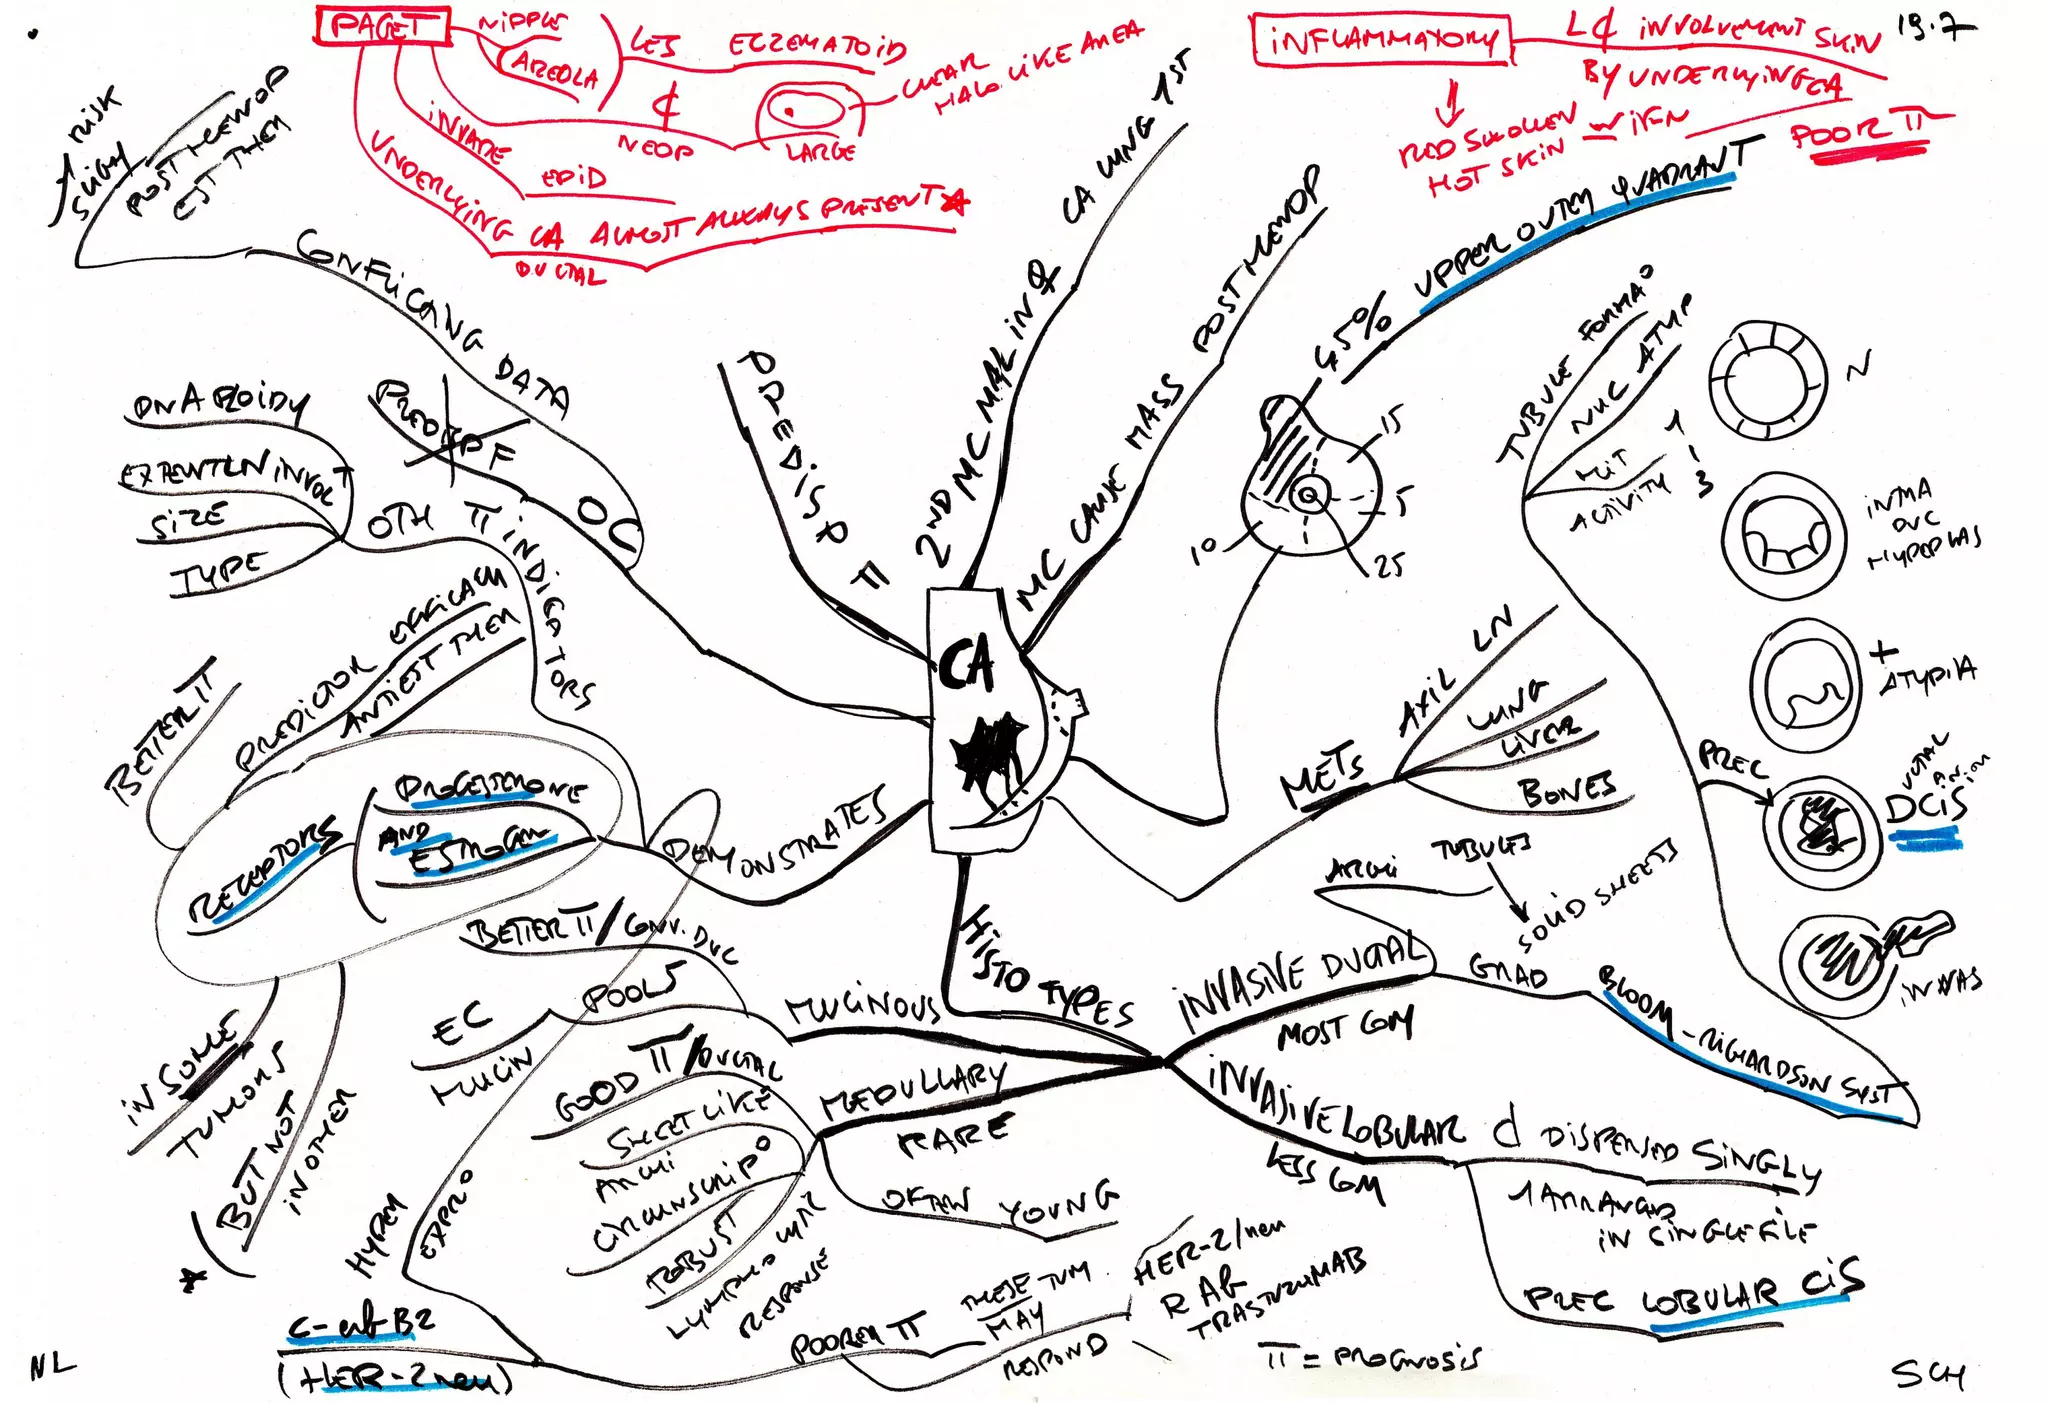 PAGET
NIPPLE
AREOLA
LES ECZEMATOID
¢
NEOP
LARGE
CLEAR
HALO LIKE AREA
INVADE
EPID
UNDERLYING CA ALMOST ALWAYS PRESENT
DUCTAL
INFLAMMATORY
L¢ INVOLVEMENT SKIN
BY UNDERLYING CA
RED SWOLLEN
HOT SKIN
POOR π
19.7
↑ RISK
SLIGH
POST MENOP
EST THER
CONFLICANG DATA
OC
PREDISP F
PREDISP π
2ND MC MAL IN ♀
CA LUNG 1ST
MC CAUSE MASS POSTMENOP
45% UPPER OUTER QUADRANT
15
5
10
25
TUBULE FORMA°
NUC ATYP
MIT
ACTIVITY
1
-
3
N
INTRA
DUC
HYPERPLAS
+
ATYPIA
PREC
DUCTAL
DCIS
INVAS
DNA PLOIDY
EXTENT LN INVOL
SIZE
TYPE
OTH π INDICATORS
BETTER π
PREDICTOR EFFICACY
ANTIEST THER
RECEPTORS
PROGESTERONE
AND
ESTROGEN
DEMONSTRATES
CA
METS
AXIL LN
LUNG
LIVER
BONES
IN SOME
TUMORS
BUT NOT
IN OTHER
HISTO TYPES
MUCINOUS
BETTER π / CONV. DUC
POOLS
EC
MUCIN
MEDULLARY
RARE
GOOD π / DUCTAL
SHEETLIKE
ARCHI
CIRCUMSCRIP°
ROBUST
LYMPHOCYTIC
RESPONSE
OFTEN YOUNG
INVASIVE DUCTAL
MOST COM
ARCHI
TUBULES
SOLID SHEETS
GRAD
BLOOM-RICHARDSON SYST
INVASIVE LOBULAR
LESS COM
¢ DISPERSED SINGLY
/ ARRANGED
IN SINGLE FILE
PREC LOBULAR CIS
HYPER
EXPR°
C-erb B2
(HER-2 neu)
POORER π
THESE TUM
MAY
RESPOND
HER-2/neu
R Ab
TRASTUZUMAB
π = PROGNOSIS
NL
SCH